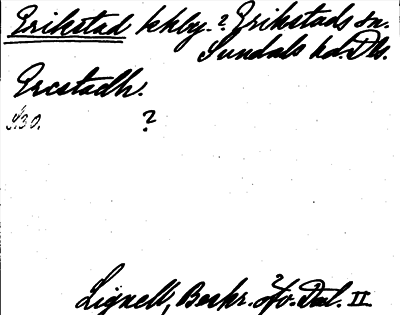 Erikstad kkby. ? Erikstads sn.
Sundals hd. Dls.
Ercstadh.
?
Lignell, Beskr. öfv. Dal. II